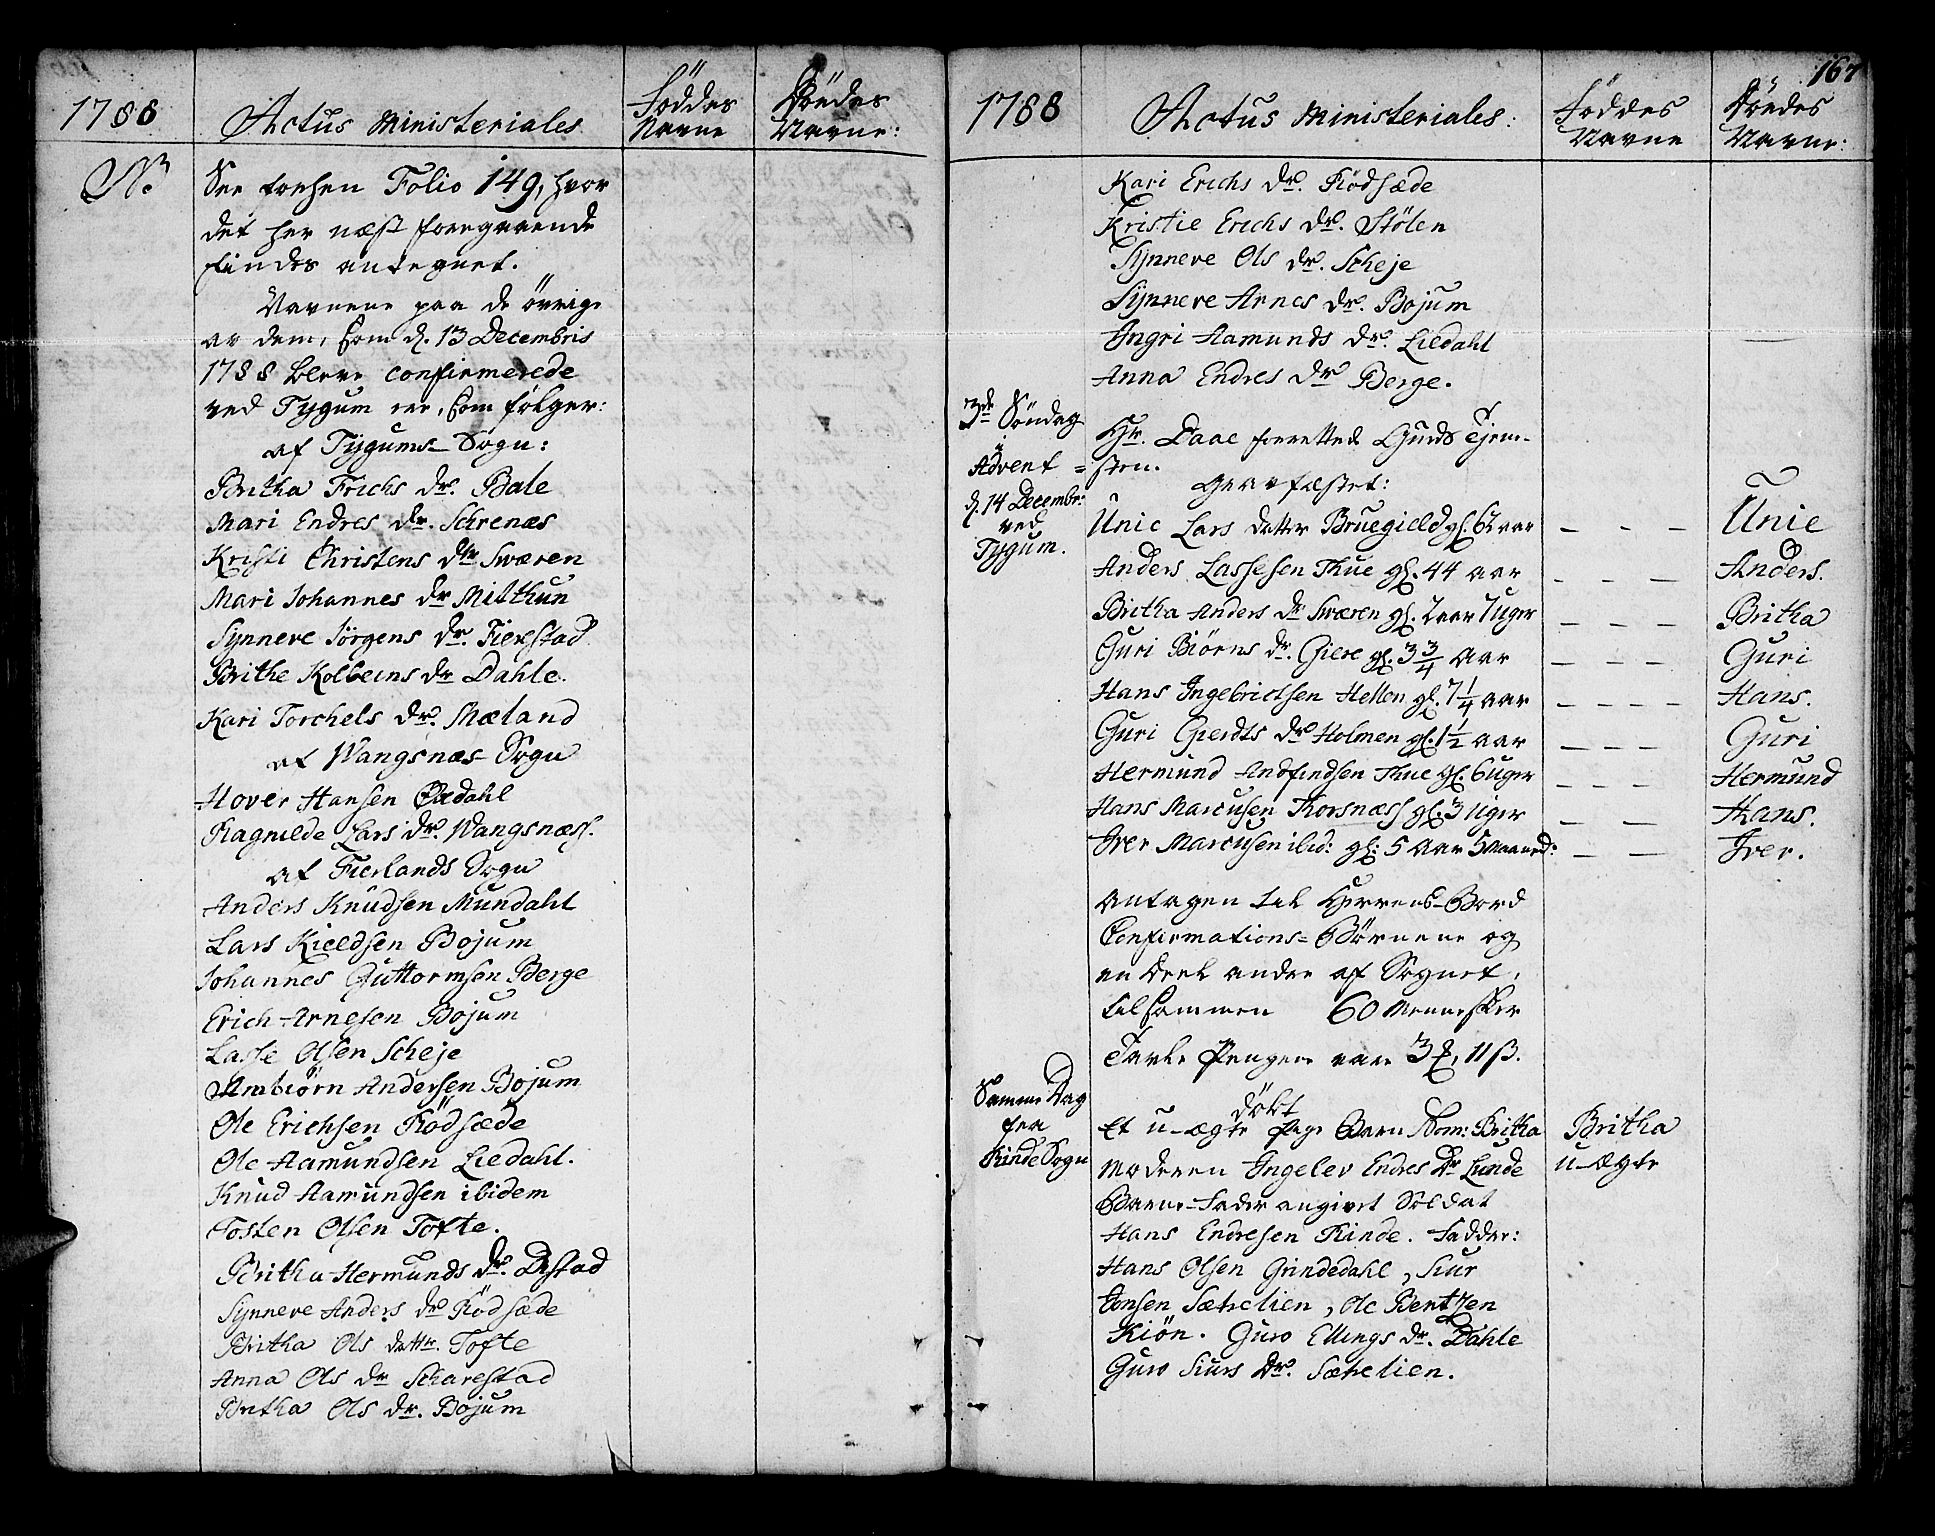 1788
Actus Ministeriales
Föddes Navne
Döedes Navne:
NB
See forhen Folio 149, hvor
det her næst foregaaende
findes antegnet.
Navnene paa de övrige
av dem, som d. 13 Decembris
1788 bleve confirmerede
ved Tygum ere, som fölger:
af Tygums Sogn:
Britha Erichs dr. Bale
Mari Endres dr. Schrenæs
Kristi Christens dtr Sværen
Mari Johannes dr Mitthun
Synneve Jörgens dr. Fierestad
Brithe Kolbeins dr Dahle.
Kari Torchels dr. Mæland
af Wangsnæs Sogn
Hover Hansen Öxdahl
Ragnilde Lars dr. Wangsnæss.
af Fierlands Sogn
Anders Knudsen Mundahl
Lars Kieldsen Bojum
Johannes Guttormsen Berge
Erich Arnesen Bojum
Lasse Olsen Scheje
Arnbiörn Andersen Bojum
Ole Erichsen Rödsæde
Ole Aamundsen Liedahl.
Knud Aamundsen ibidem
Tosten Olsen Tofte.
Britha Hermunds dr. Distad
Synneve Anders dr Rödsæde
Britha Ols dettr. Tofte
Anna Ols dr Scharestad
Britha Ols dr. Bojum
167
1788
Actus Ministeriales:
Föddes Navne
Döedes Navne:
Kari Erichs dr. Rödsæde
Kristie Erichs dr. Stölen
Synneve Ols dr. Scheje
Synneve Arnes dr. Bojum
Ingri Aamunds dr. Liedahl
Anna Endres dr Berge.
3de Söndag
i
Advent =
d. 14 Decembr:
ved
Tygum.
Hr. Daae forrettede Guds Tjene-
sten.
Gravfæstet:
Unie Lars datter Bruegield gl. 62 aar — — — Unie
Anders Lassesen Thue gl. 44 aar — — — Anders.
Britha Anders dr Sværen gl. 2 aar 7 uger — — — Britha
Guri Biörns dr. Giere gl. 3 3/4 Aar — — — Guri
Hans Ingebrictsen Hellen gl. 7 1/4 aar — — — — Hans.
Guri Gierdts dr Holmen gl. 1 1/2 aar — — — Guri
Hermund Andfindsen Thue gl. 6 uger — — — Hermund
Hans Marcusen Korsnæss gl. 3 uger — — — Hans.
Iver Marcusen ibid: gl: 5 Aar 5 Maaned: — — Iver.
Antagen til Herrens Bord
Confirmations-Börnene og
en Deel andre af Sognet,
tilsammen 60 Mennesker
Tavle Pengene vare 3 11 ß.
Samme Dag
fra
Rinde Sogn
döbt
Et u-ægte Pige Barn Nom: Britha
Britha
u-ægte
Moderen Ingelev Endres Dr Lunde
Barne-Fader angivet Soldat
Hans Endresen Rinde. Fadder:
Hans Olsen Grindedahl, Siur
Jonsen Sæhelien, Ole Bentzen
Kiön. Guro Ellings dr. Dahle
Guro Siurs Dr. Sæhelien.